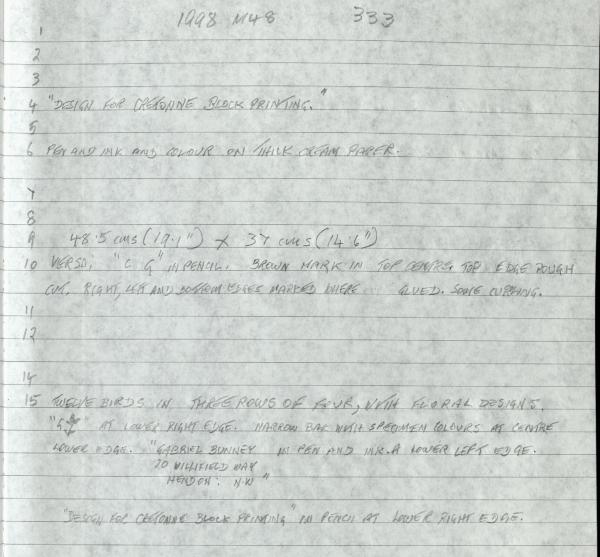 1998 M48 333
1
2
3
4 "DESIGN FOR CRETONNE BLOCK PRINTING."
5
6 PEN AND INK AND COLOUR ON THICK CREAM PAPER.
7
8
9 48.5 cms (19.1") x 37 cms (14.6")
10 VERSO, "C G" IN PENCIL. BROWN MARK IN TOP CENTRE. TOP EDGE ROUGH
CUT, RIGHT, LEFT AND BOTTOM EDGES MARKED WHERE GLUED. SOME CURLING.
11
12
14
15 TWELVE BIRDS IN THREE ROWS OF FOUR, WITH FLORAL DESIGNS.
AT LOWER RIGHT EDGE. NARROW BAR WITH SPECIMEN COLOURS AT CENTRE
LOWER EDGE. "GABRIEL BUNNEY IN PEN AND INK. A LOWER LEFT EDGE.
20 WILLIFIELD WAY
HENDON. N.W"
"DESIGN FOR CRETONNE BLOCK PRINTING" IN PENCIL AT LOWER RIGHT EDGE.